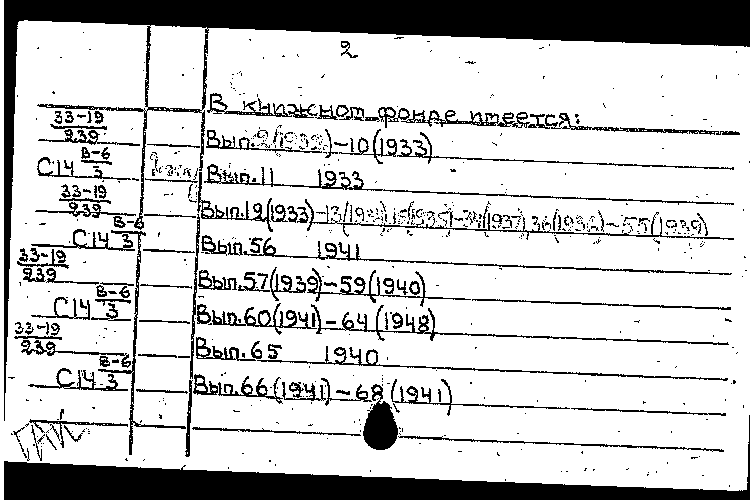 2
В книжном фонде имеется:
33-19/239 Вып.2(1932)-10(1933)
С14 В-6/3 Вып.11 1933
33-19/239 Вып.12(1933)-13(1934),15(1935)-34(1937),36(1938)-55(1939)
С14 В-6/3 Вып.56 1941
33-19/239 Вып.57(1939)-59(1940)
С14 В-6/3 Вып.60(1941)-64(1948)
33-19/239 Вып.65 1940
С14 В-6/3 Вып.66(1941)-68(1941)